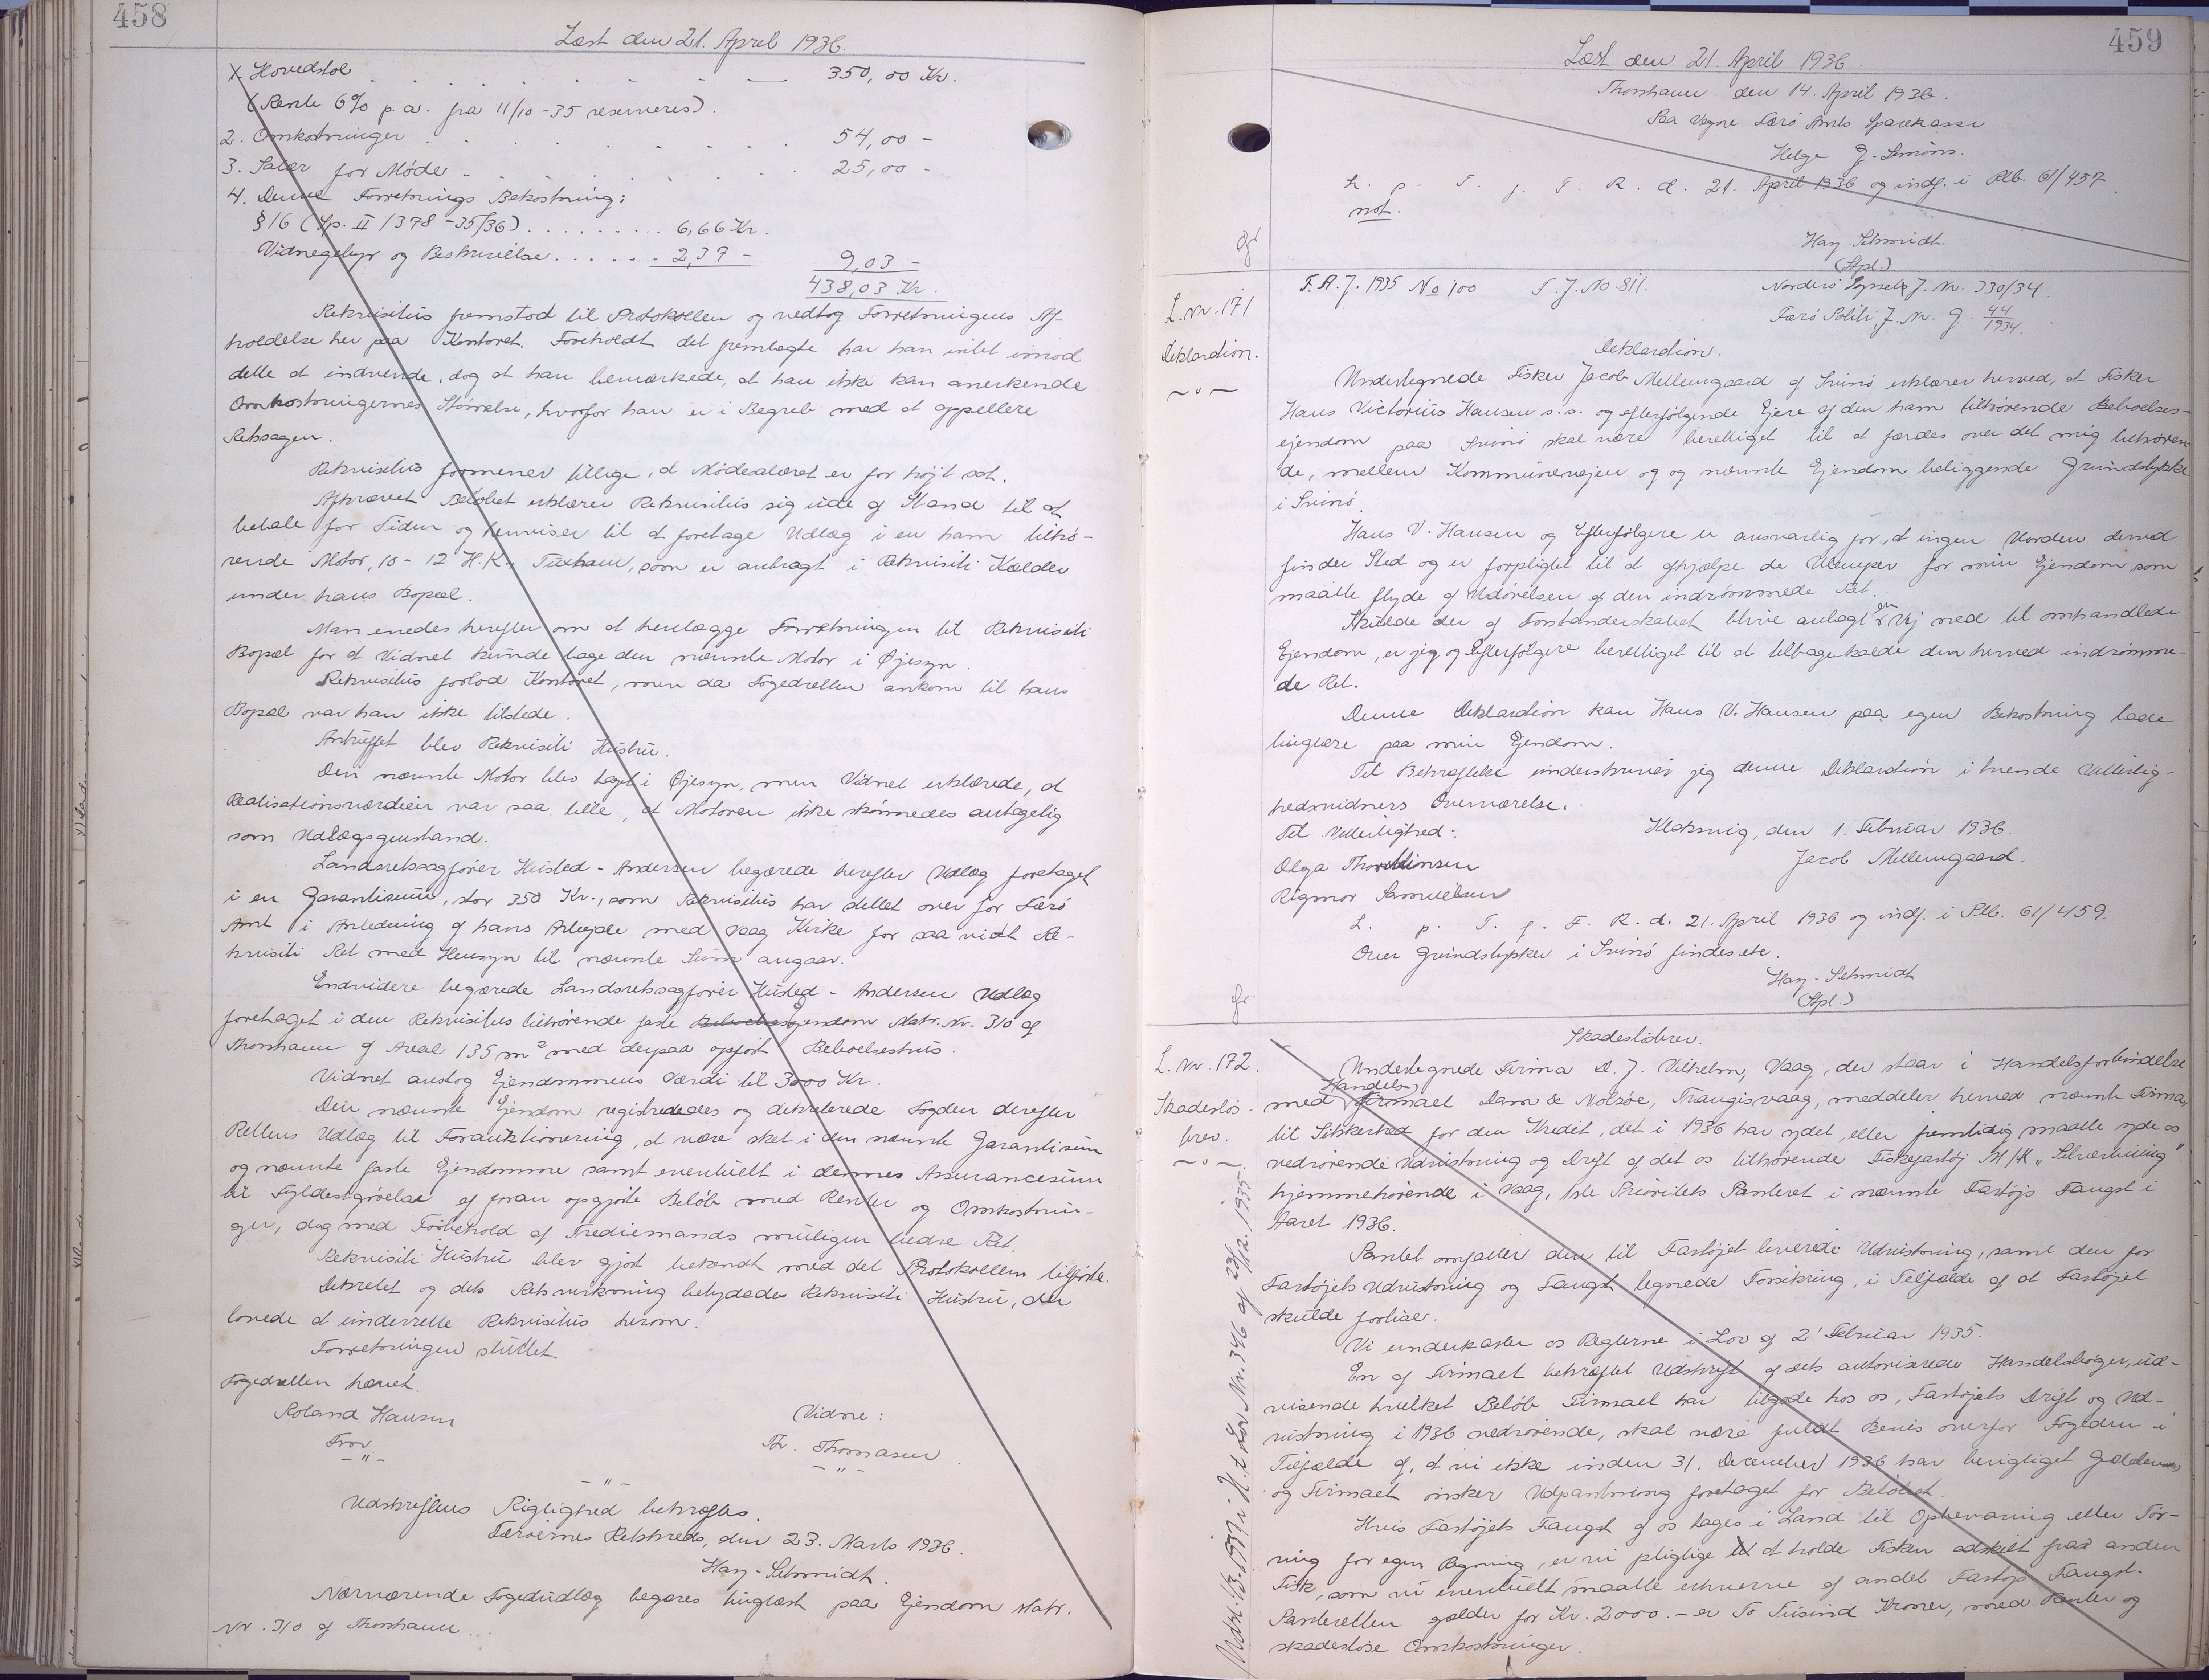 458
Læst den 21. April 1936.
X Hovedstol . . . . . . . . 350,00 Kr.
(Rente 6% p.a. fra 11/10-35 reserveres).
2. Omkostninger . . . . . . . . 54,00 -
3. Salær for Møde . . . . . . . . 25,00 -
4. Denne Forretnings Bekostning:
§ 16 (Sp. II 1378-35/36) . . . . . . . . . 6,66 Kr.
Vidnegebyr og Beskrivelse . . . . . . 2,37 - 9,03 -
438,03 Kr.
Rekvisitus fremstod til Protokollen og vedtog Forretningens Af-
holdelse her paa Kontoret. Foreholdt det fremlagte har han intet imod
dette at indvende, dog at han bemærkede, at han ikke kan anerkende
Omkostningernes Størrelse, hvorfor han er i Begreb med at appellere
Retssagen.
Rekvisitus formener tillige, at Mødesalæret er for højt sat.
Afkrævet Beløbet erklærer Rekvisitus sig ude af Stand til at
betale for Tiden og henviser til at foretage Udlæg i en ham tilhø-
rende Motor, 10-12 H.K., Tuxham, som er anbragt i Rekvisiti Kælder
under hans Bopæl.
Man enedes herefter om at henlægge Forretningen til Rekvisiti
Bopæl for at Vidnet kunde tage den nævnte Motor i Øjesyn.
Rekvisitus forlod Kontoret, men da Fogedretten ankom til hans
Bopæl var han ikke tilstede.
Antruffet blev Rekvisiti Hustru.
Den nævnte Motor blev taget i Øjesyn, men Vidnet erklærede, at
Realisationsværdien var saa lille, at Motoren ikke skønnedes antagelig
som Udlægsgenstand.
Landsretssagfører Husted-Andersen begærede herefter Udlæg foretaget
i en Garantisum, stor 350 Kr., som Rekvisitus har stillet over for Færø
Amt i Anledning af hans Arbejde med Vaag Kirke for saa vidt Re-
kvisiti Ret med Hensyn til nævnte Sum angaar.
Endvidere begærede Landsretssagfører Husted-Andersen Udlæg
foretaget i den Rekvisitus tilhørende faste Ejendom Matr. Nr. 310 af
Thorshavn af Areal 135 m² med derpaa opført Beboelseshus.
Vidnet anslog Ejendommens Værdi til 3000 Kr.
Den nævnte Ejendom registredes og dekreterede Fogden derefter
Rettens Udlæg til Forauktionering, at være sket i den nævnte Garantisum
og nævnte faste Ejendomme samt eventuelt i dennes Assurancesum
til Fyldestgørelse af foran opgjorte Beløb med Renter og Omkostnin-
ger, dog med Forbehold af Trediemands muligen bedre Ret.
Rekvisiti Hustru blev gjort bekendt med det Protokollen tilførte.
Dekretet og dets Retsvirkning betydedes Rekvisiti Hustru, der
lovede at underrette Rekvisitus herom.
Forretningen sluttet.
Fogedretten hævet.
Roland Hansen Vidne:
Fmr. Th. Thomasen
-"- -"-
-"-
Udskriftens Rigtighed bekræftes.
Færøernes Retskreds, den 23. Marts 1936.
Hay-Schmidt.
Nærværende Fogedudlæg begæres tinglæst paa Ejendom Matr.
Nr. 310 af Thorshavn.
459
Læst den 21. April 1936.
Thorshavn den 14. April 1936.
Paa Vegne Færø Amts Sparekasse
Helge J.
L. p. T. f. F. R. d. 21. April 1936 og indf. i Plb. 61/457.
not.
Hay-Schmidt
(Stpl.)
L. nr. 171
Deklaration.
F.A.J. 1935 No 100 T.J. No. 811. Norderø Syssels J. Nr. 330/34.
Færø Politi, J. Nr. G 44/1934.
Deklaration.
Undertegnede Fisker Jacob Mellemgaard af Svinø erklærer herved, at Fisker
Hans Victorius Hansen s.s. og efterfølgende Ejere af den ham tilhørende Beboelses-
ejendom paa Svinø skal være berettiget til at færdes over det mig tilhøren
de, mellem Kommunevejen og og nævnte Ejendom beliggende Grundstykke
i Svinø.
Hans V. Hansen og Efterfølgere er ansvarlig for, at ingen Uorden derved
finder Sted og er forpligtet til at afhjælpe de Ulemper for min Ejendom, som
maatte flyde af Udøvelsen af den indrømmede Ret.
Skulde der af Forstanderskabet blive anlagt en Vej ned til omhandlede
Ejendom, er jeg og Efterfølgere berettiget til at tilbagekalde den herved indrømme-
de Ret.
Denne Deklaration kan Hans V. Hansen paa egen Bekostning lade
tinglæse paa min Ejendom.
Til Bekræftelse underskriver jeg denne Deklaration i tvende Vitterlig-
hedsvidners Overværelse.
Til Vitterlighed: Klaksvig, den 1. Februar 1936.
Olga Jacob Mellemgaard.
Rigmor Samuelsen
L. p. T. f. F. R. d. 21. April 1936 og indf. i Plb. 61/459.
Over Grundstykker i Svinø findes etc.
Hay-Schmidt
(Stpl.)
L. nr. 172.
Skadesløs-
brev.
Udsl. 1937 i H. t. Lov Nr. 346 af 23/12 1935.
Skadesløsbrev.
Undertegnede Firma D. J. Vilhelm, Vaag, der staar i Handelsforbindelse
med Handelsfirmaet Dam & Nolsøe, Trangisvaag, meddeler herved nævnte Firma,
til Sikkerhed for den Kredit, det i 1936 har ydet, eller fremtidig maatte yde os
vedrørende Udrustning og Drift af det os tilhørende Fiskefartøj M/K „Silvervining"
hjemmehørende i Vaag, 1ste Prioritets Panteret i nævnte Fartøjs Fangst i
Aaret 1936.
Pantet omfatter den til Fartøjet leverede Udrustning, samt den for
Fartøjets Udrustning og Fangst tegnede Forsikring, i Tilfælde af at Fartøjet
skulde forlise.
Vi underkaster os Reglerne i Lov af 2' Februar 1935.
En af Firmaet bekræftet Udskrift af dets autoriserede Handelsbøger, ud-
visende hvilket Beløb Firmaet har tilgode hos os, Fartøjets Drift og Ud-
rustning i 1936 vedrørende, skal være fuldt Bevis overfor Fogden i
Tilfælde af, at vi ikke inden 31. December 1936 har berigtiget Gælden
og Firmaet ønsker Udpantning foretaget for Beløbet.
Hvis Fartøjets Fangst af os tages i Land til Opbevaring eller Tør-
ring for egen Regning, er vi pligtige til at holde Fisken adskilt fra anden
Fisk, som vi eventuelt maatte erhverve af andet Fartøjs Fangst.
Panteretten gælder for Kr. 2000.- er To Tusind Kroner, med Renter og
skadesløse Omkostninger.